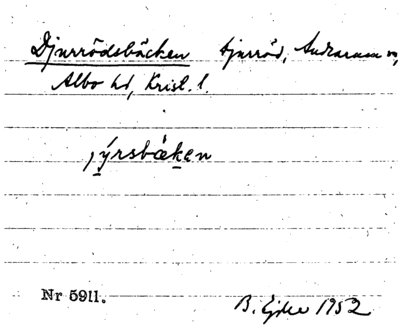 Djurrödsbäcken Djurröd, Andrarum sn,
Albo hd, Krist. l.
jýrsbæken
Nr 5911.
B. Ejder 1952